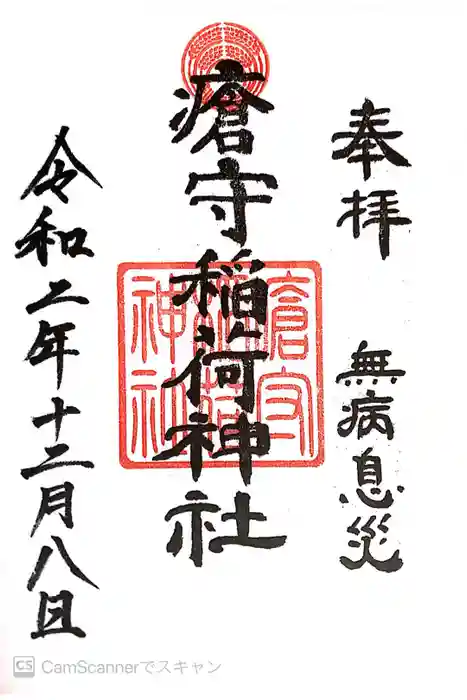 奉拝
無病息災
瘡守稲荷神社
瘡守稲荷神社
令和二年十二月八日
CS CamScannerでスキャン